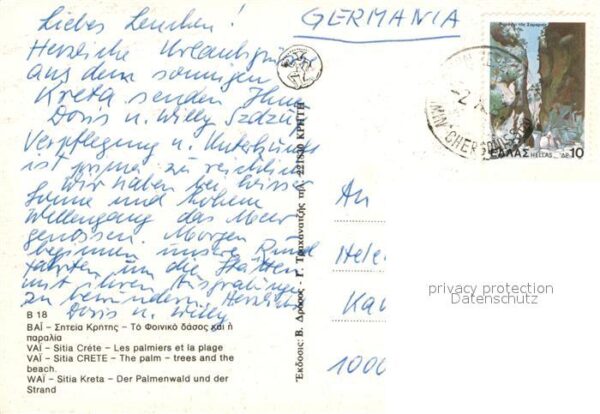 Liebes Lenchen!
Herzliche Urlaubsgrüsse
aus dem sonnigen
Kreta senden Ihnen
Doris u. Willy
Verpflegung u. Unterkunft
ist prima zu reichlich
wir haben bei heisser
Sonne und hohem
Wellengang das Meer
genossen. Morgen
beginnen unsere Rund
fahrten um die Stätten
mit ihren Ausgrabungen
zu bewundern. Herzlichst
Doris u. Willy
B 18
ΒΑΪ – Σητεία Κρήτης – Τό Φοινικό δάσος καί ἡ
παραλία
VAÏ – Sitia Crète – Les palmiers et la plage
VAÏ – Sitia CRETE – The palm – trees and the
beach.
WAÏ – Sitia Kreta – Der Palmenwald und der
Strand
Ἐκδοσις: Β. Δρόσος - Γ. Τραχανατζῆς τηλ. 221830 ΚΡΗΤΗ
GERMANIA
ΕΛΛΑΣ HELLAS ΔΡ 10
An
Hele
Kau
1000
privacy protection
Datenschutz